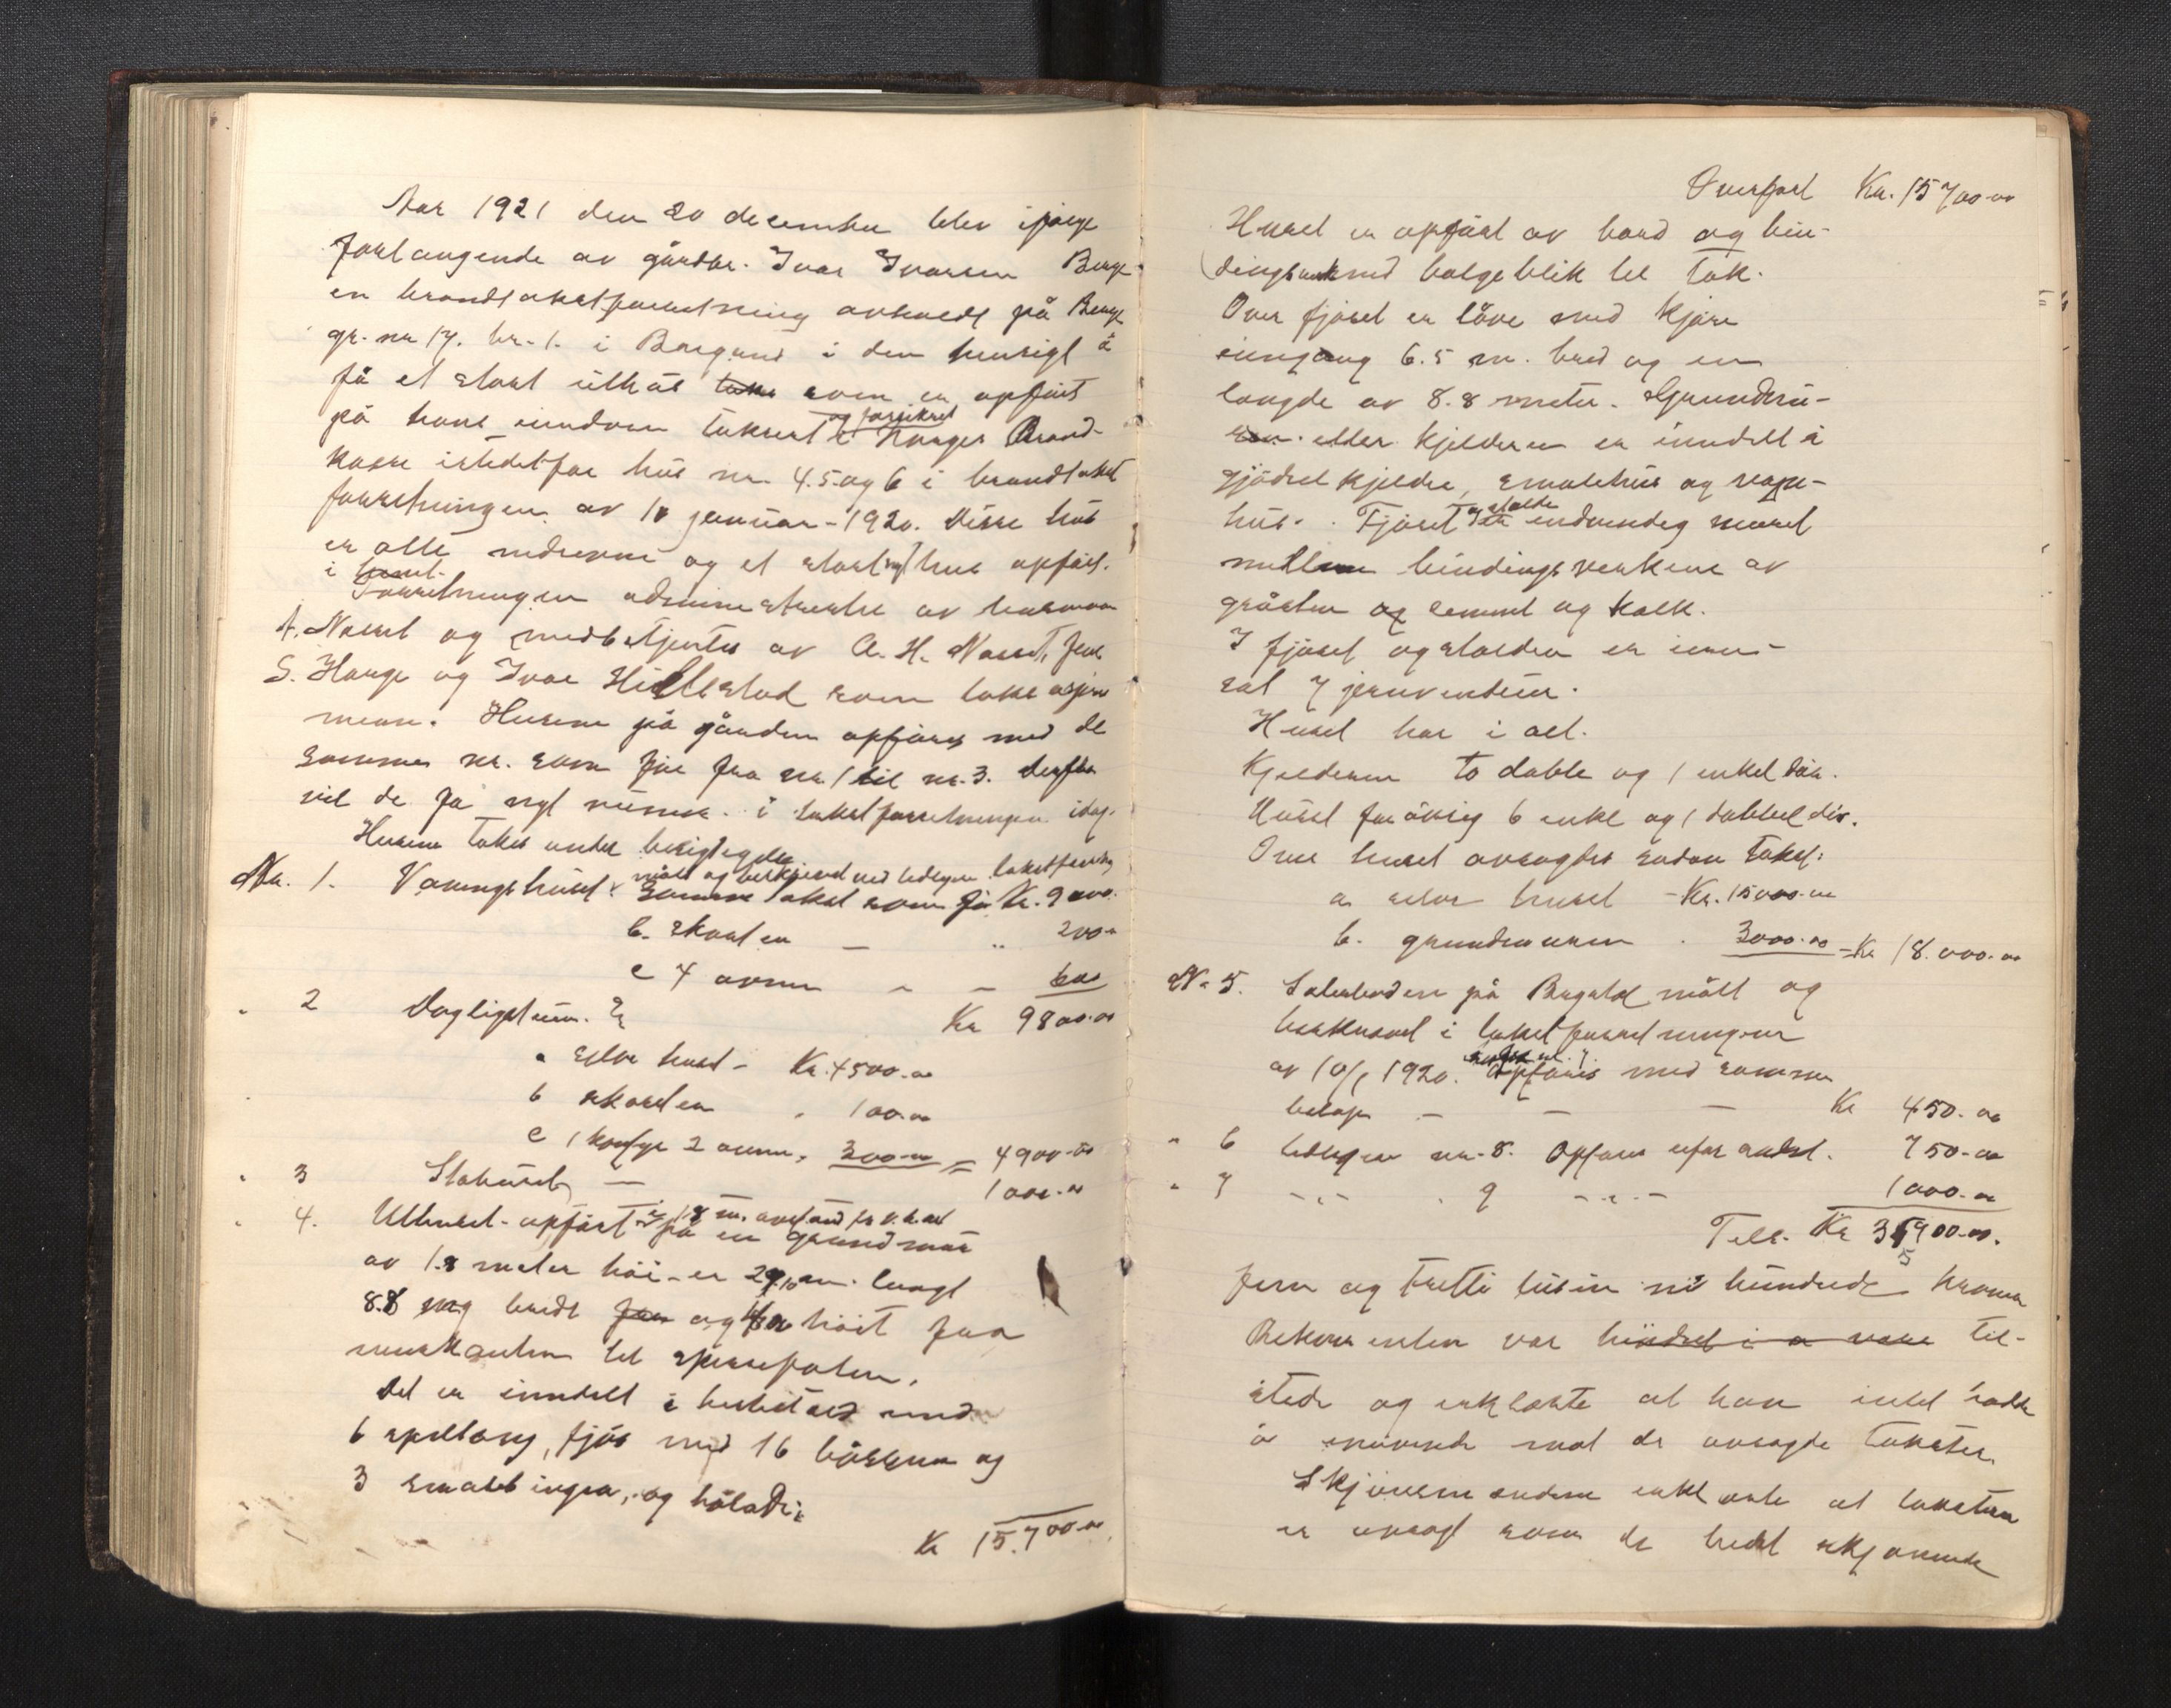 Aar 1921 den 20 december blev ifølge
forlangende av gårdbr. Ivar Ivarsen Berge
en brandtakstforretning avholdt på Berge
gr. nr 17. br. 1. i Borgund i den hensigt å
få et stort uthus som er opført
på hans eiendom taksert og forsikret i Norges Brand-
kasse istedetfor hus nr. 4.5. og 6 i brandtakst
forretningen av 10 januar - 1920. Disse hus
er alle nedrevne og et stort nyt hus opført.
i
Forretningen administrertes av lensmann
A. Næset og medbetjentes av A. H. Næset,
S. Hauge og Ivar Hillestad som takstskjøns
menn. Husene på gården opføres med de
samme nr. som før fra nr. 1 til nr. 3. Derfra
vil de få nyt nummer i takstforretningen idag.
Husene takes under besigtigelse
Nr. 1. Våningshuset målt og beskrevet ved tidligere takstforretn
samme takst som før Kr. 9000.
b. skorsten — " 200-
c 4 ovner - - 600
Kr 9800.00
" 2 Dagligstuen.
a selve huset - Kr. 4500.00
b skorsten " 100.00
c 1 komfyr 2 ovner, 300.00 = 4900.00
" 3 Stabburet — 1000.00
" 4. Uthuset - opført i 18 m. avstand fra v.huset
på en grundmur
av 1.8 meter høi - er 29,10 m. langt
8.8 m bredt og høit fra
murkanten til sperrefoten.
Det er inndelt i hestestald med
6 spiltaug, fjøs med 16 båsrum og
3 smalebinger, og hølade.
Kr 15.700.00
Overført Kr. 15700.00
Huset er opført av bord og bin-
dingsverk med bølgeblik til tak.
Over fjøset er låve med kjøre
inngang 6.5 m. bred og en
længde av 8.8 meter. Grundmu-
ren eller kjelderen er inndelt i
gjødselkjelder, smalehus og
hus. Fjøset og stalden er indvendig muret
mellem bindingsverkene av
gråsten og cement og kalk.
I fjøset og stalden er inn-
sat 7 jernvinduer.
Huset har i alt.
Kjelderen to doble og 1 enkel dør.
Huset forøvrig 6 enkle og 1 dobbel dør.
Over huset avsagdes sådan takst:
a. selve huset - Kr. 15000.00
b. grundmuren . 3000.00 = Kr 18.000.00
Nr 5. på målt og
beskrevet i takstforretningen
av 10/1 1920. under nr. 7. Opføres med samme
beløp — — — Kr 450.00
" 6 tidligere nr. 8. Opføres uforandret. 750.00
" 7 -"- . 9 -"- 1000.00
Tils. Kr 35900.00.
5
Fem og tretti tusin ni hundrede kroner
Rekvirenten var til-
stede og erklærte at han intet hadde
å innvende mot de avsagte takster.
Skjønsmændene erklærte at taksten
er avsagt som de bedst skjønnede